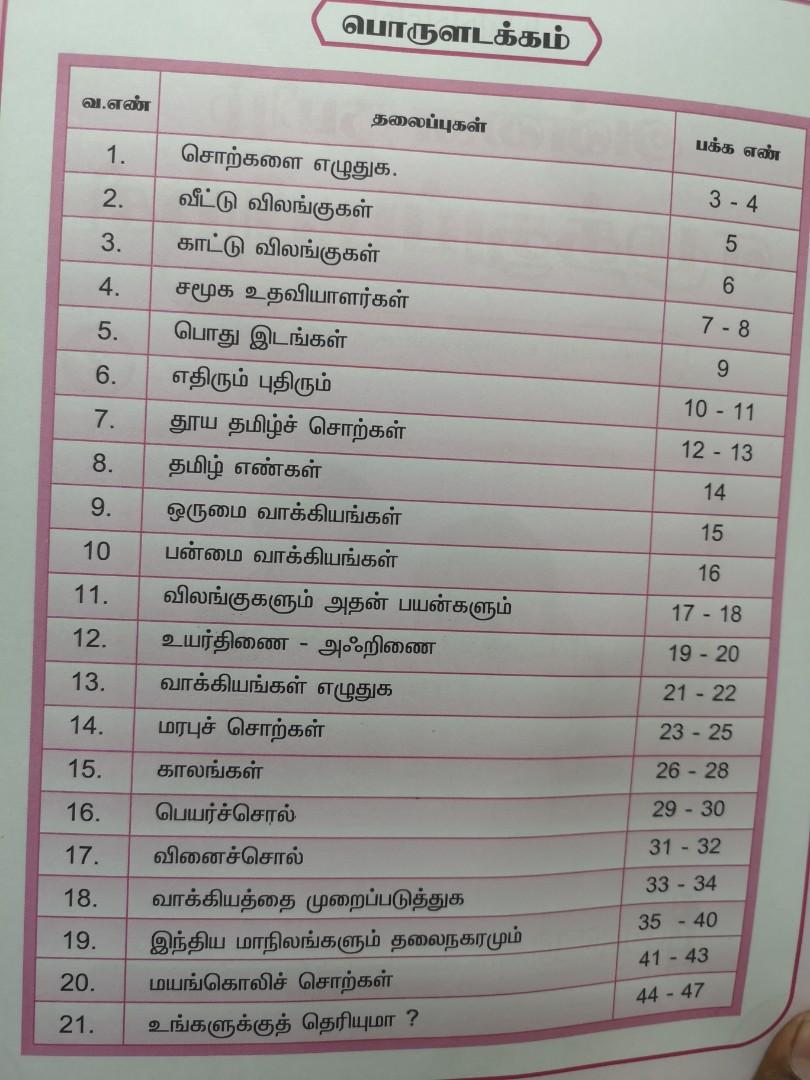 பொருளடக்கம்
வ.எண் தலைப்புகள் பக்க எண்
1. சொற்களை எழுதுக. 3 - 4
2. வீட்டு விலங்குகள் 5
3. காட்டு விலங்குகள் 6
4. சமூக உதவியாளர்கள் 7 - 8
5. பொது இடங்கள் 9
6. எதிரும் புதிரும் 10 - 11
7. தூய தமிழ்ச் சொற்கள் 12 - 13
8. தமிழ் எண்கள் 14
9. ஒருமை வாக்கியங்கள் 15
10 பன்மை வாக்கியங்கள் 16
11. விலங்குகளும் அதன் பயன்களும் 17 - 18
12. உயர்திணை - அஃறிணை 19 - 20
13. வாக்கியங்கள் எழுதுக 21 - 22
14. மரபுச் சொற்கள் 23 - 25
15. காலங்கள் 26 - 28
16. பெயர்ச்சொல் 29 - 30
17. வினைச்சொல் 31 - 32
18. வாக்கியத்தை முறைப்படுத்துக 33 - 34
19. இந்திய மாநிலங்களும் தலைநகரமும் 35 - 40
20. மயங்கொலிச் சொற்கள் 41 - 43
21. உங்களுக்குத் தெரியுமா ? 44 - 47